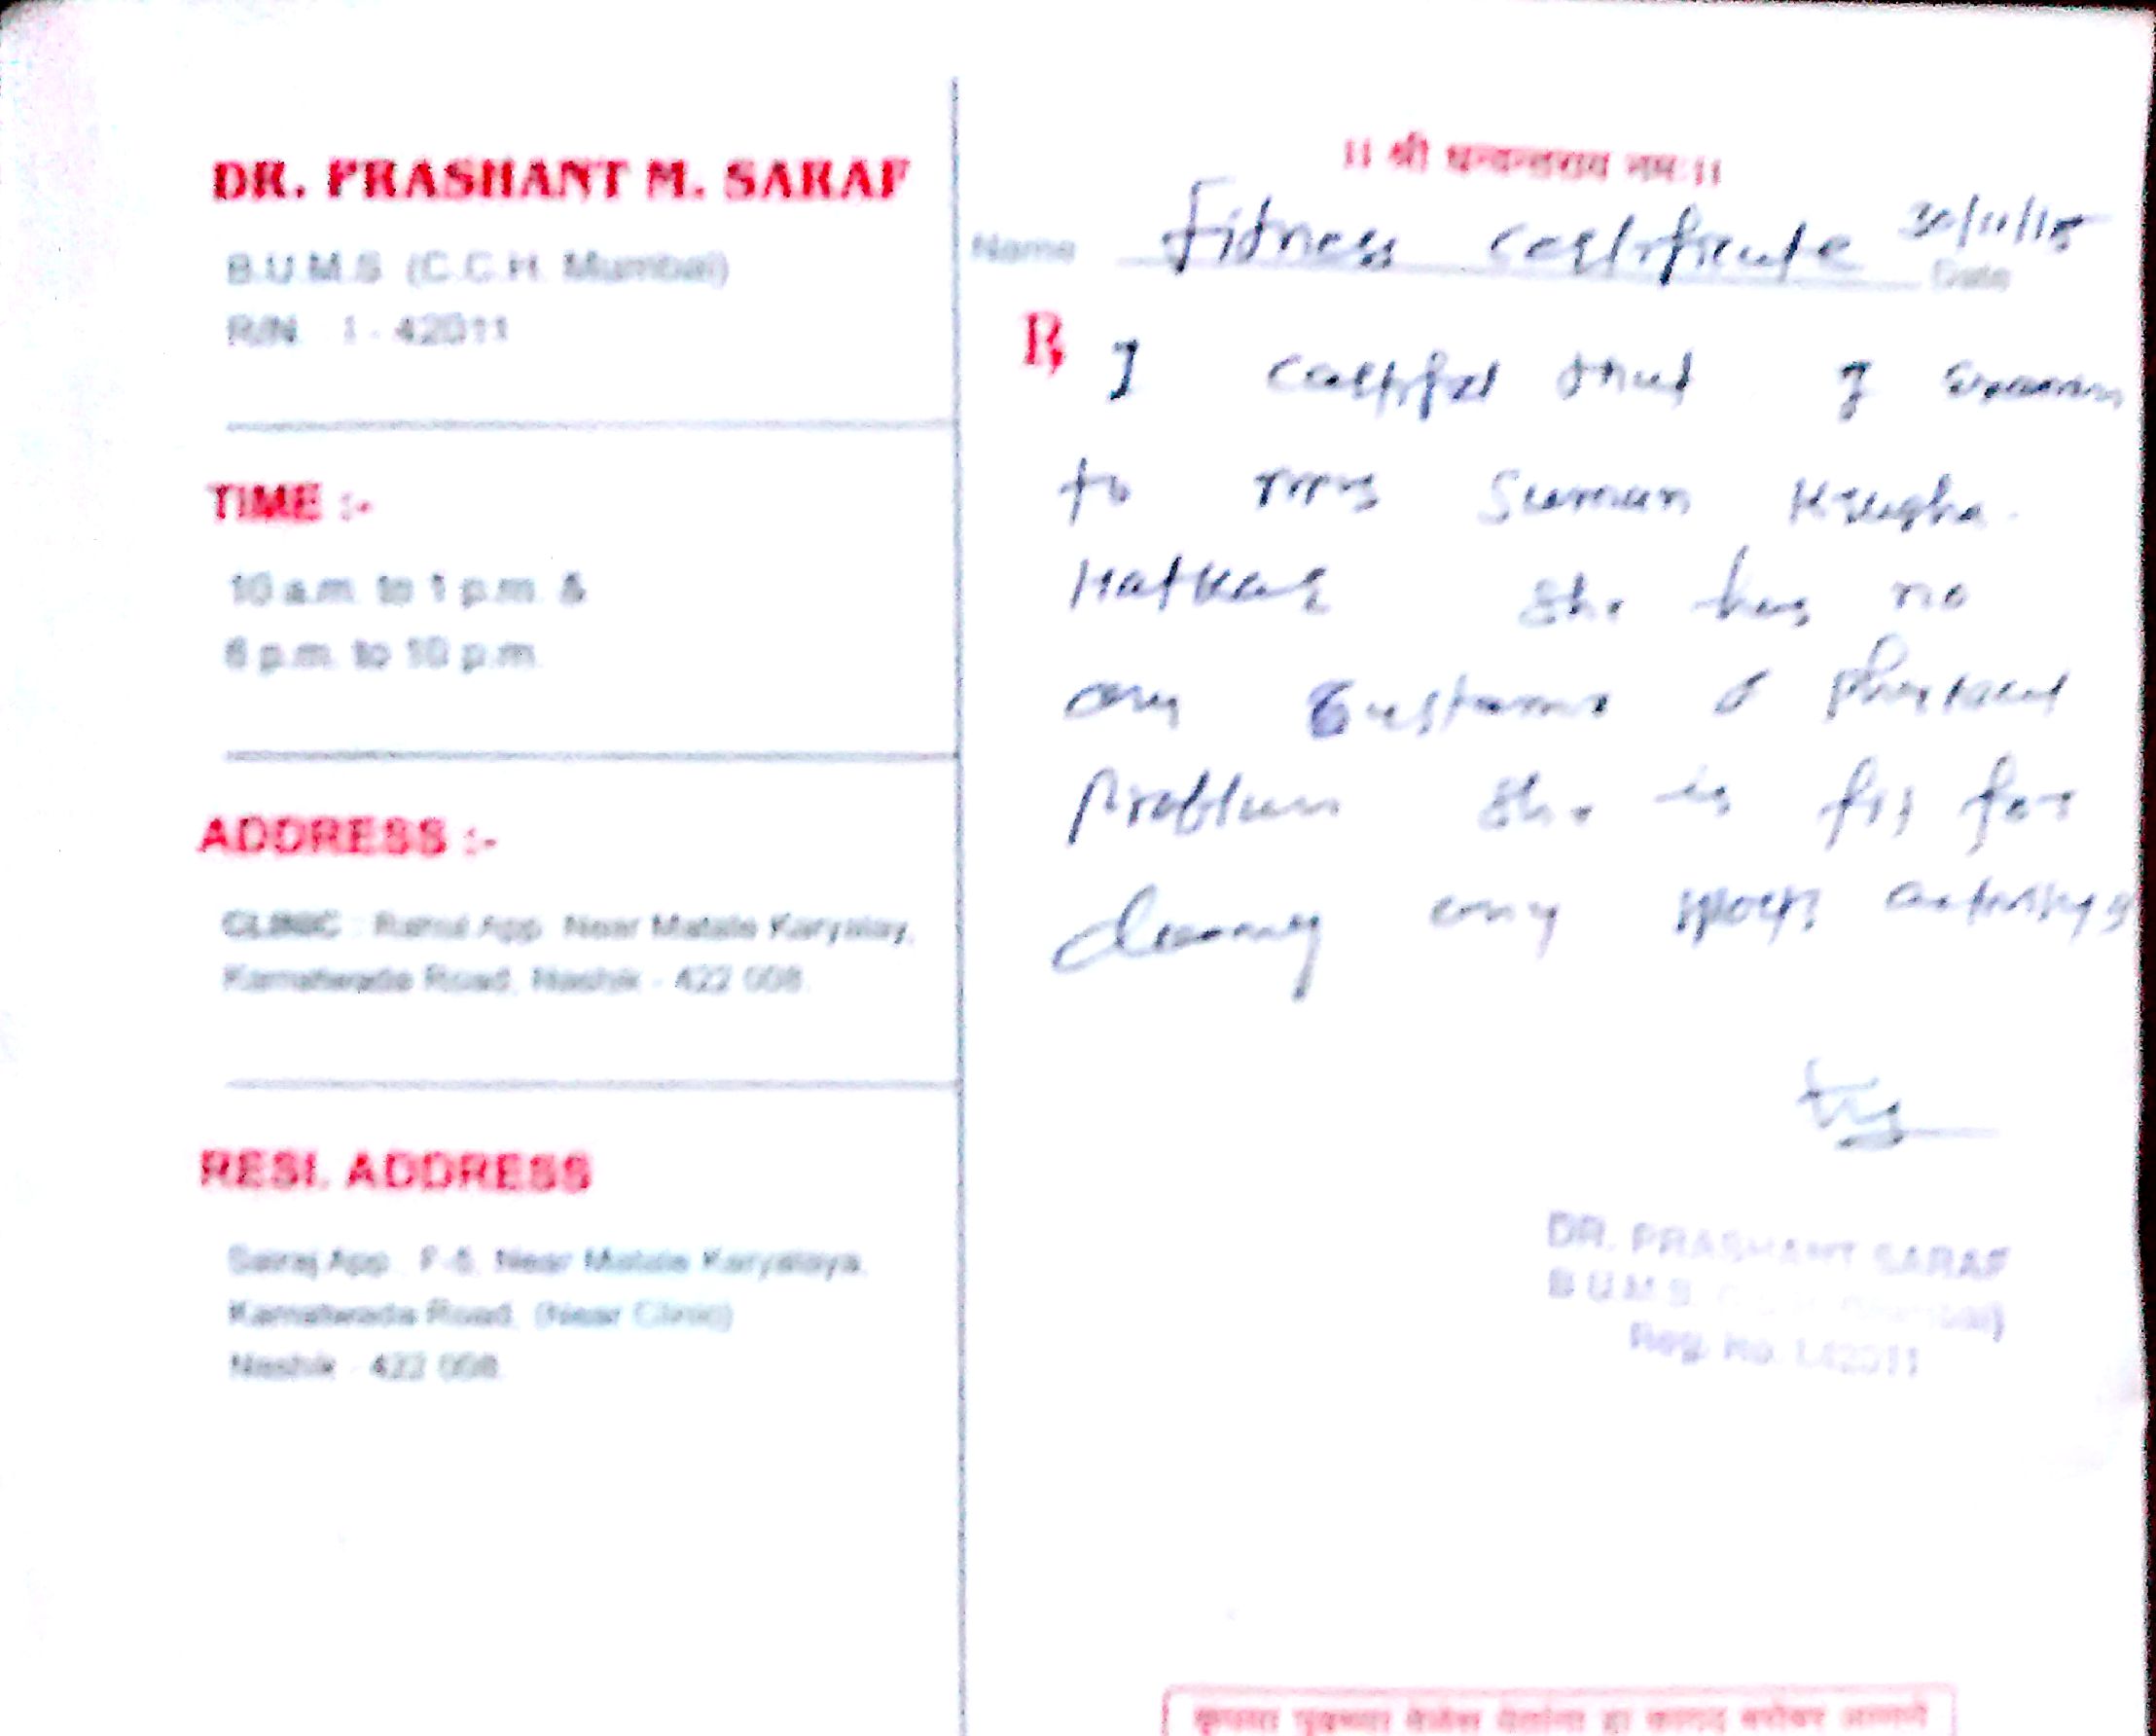 DR. PRASHANT M. SARAF
B.U.M.S (C.C.H. Mumbai)
R/N. I - 42011
TIME :-
10 a.m. to 1 p.m. &
6 p.m. to 10 p.m.
ADDRESS :-
CLINIC : Rahul App. Near Matale Karyalay,
Kamatwada Road, Nashik - 422 008.
RESI. ADDRESS
Sairaj App. F-5, Near Matale Karyalaya,
Kamatwada Road, (Near Clinic)
Nashik - 422 008.
।। श्री धन्वन्तराय नमः ।।
Name Fitness certificate 30/11/15
Date
℞ I that I
to mrs Suman
Hatkar She has no
any & Physical
Problem She is fit for
any sports
DR. PRASHANT SARAF
B.U.M.S.
Reg. No. I-42011
कृपया पुढच्या वेळेस येतांना हा कागद बरोबर आणणे